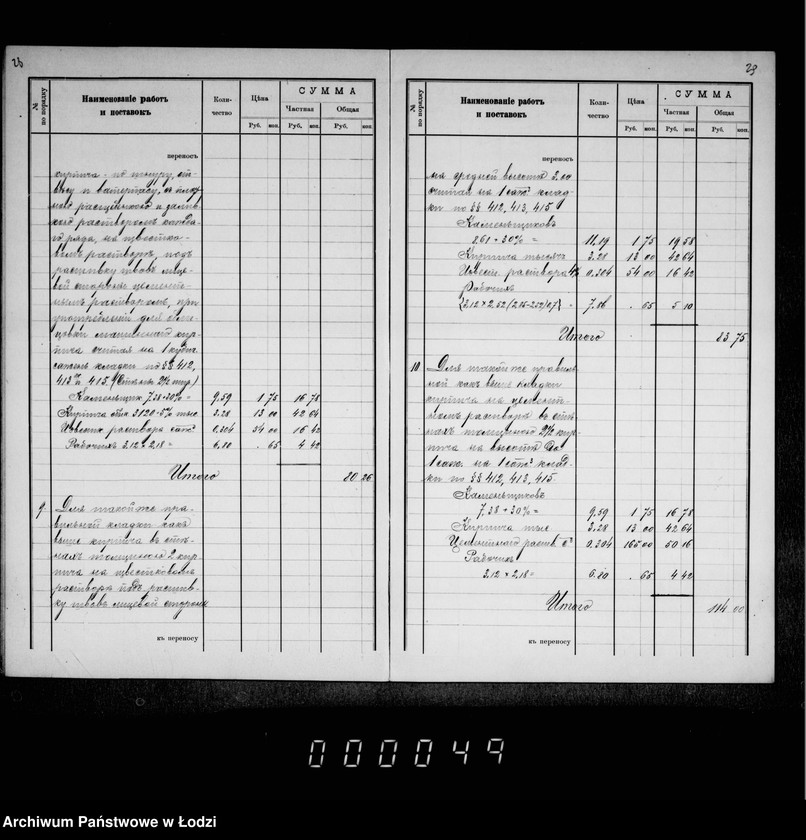 28
№ по порядку
Наименованіе работъ и поставокъ
Коли-чество
Цѣна
СУММА
Частная
Общая
Руб. коп. Руб. коп. Руб. коп.
переносъ
кирпича по шнуру, от-
вѣсу и ватерпасу, съ
раствором
го ряда, на известко-
вымъ растворѣ, подъ
расшивку швовъ лице-
вой стороны цемент-
нымъ растворомъ, при
употребленіи для обли-
цовки машиннаго кир-
пича считая на 1 кубич.
сажень кладки по §§ 412,
413 и 415.
Каменьщик. 7,38+30% = 9,59 1 75 16 78
Кирпича 3120+5% тыс 3.28 13 00 42 64
раствора саж³ 0,304 54 00 16 42
Рабочихъ 3.12+2,18= 6.80 . 65 4 42
Итого 80 26
9. Для такой же пра-
вильной кладки какъ
выше кирпича въ стѣ-
нахъ толщиною 2 кир-
пича на известковомъ
растворѣ подъ расшив-
ку швовъ лицевой стороны
къ переносу
29
№ по порядку
Наименованіе работъ и поставокъ
Коли-чество
Цѣна
СУММА
Частная
Общая
Руб. коп. Руб. коп. Руб. коп.
переносъ
на средней высотѣ 3.00
считая на 1 саж³ клад-
ки по §§ 412, 413, 415
Каменьщиковъ
8.61+30% = 11,19 1 75 19 58
Кирпича тысячъ 3.28 13 00 42 64
Извест. раствора 0.304 54 00 16 42
Рабочихъ
7.86 . 65 5 10
Итого 83 75
10. Для такой же правиль-
ной какъ выше кладки
кирпича на цемент-
номъ растворѣ въ стѣ-
нахъ толщиною 2½ кир-
пича на высотѣ до
1 саж. на 1 саж³ клад-
ки по §§ 412, 413, 415
Каменьщиковъ
7,38+30% = 9,59 1 75 16 78
Кирпича тыс 3.28 13 00 42 64
Цементнаго раств. с³ 0,304 165 00 50 16
Рабочихъ
3.12+2,18= 6.80 . 65 4 42
Итого 114 00
къ переносу
000049
Archiwum Państwowe w Łodzi